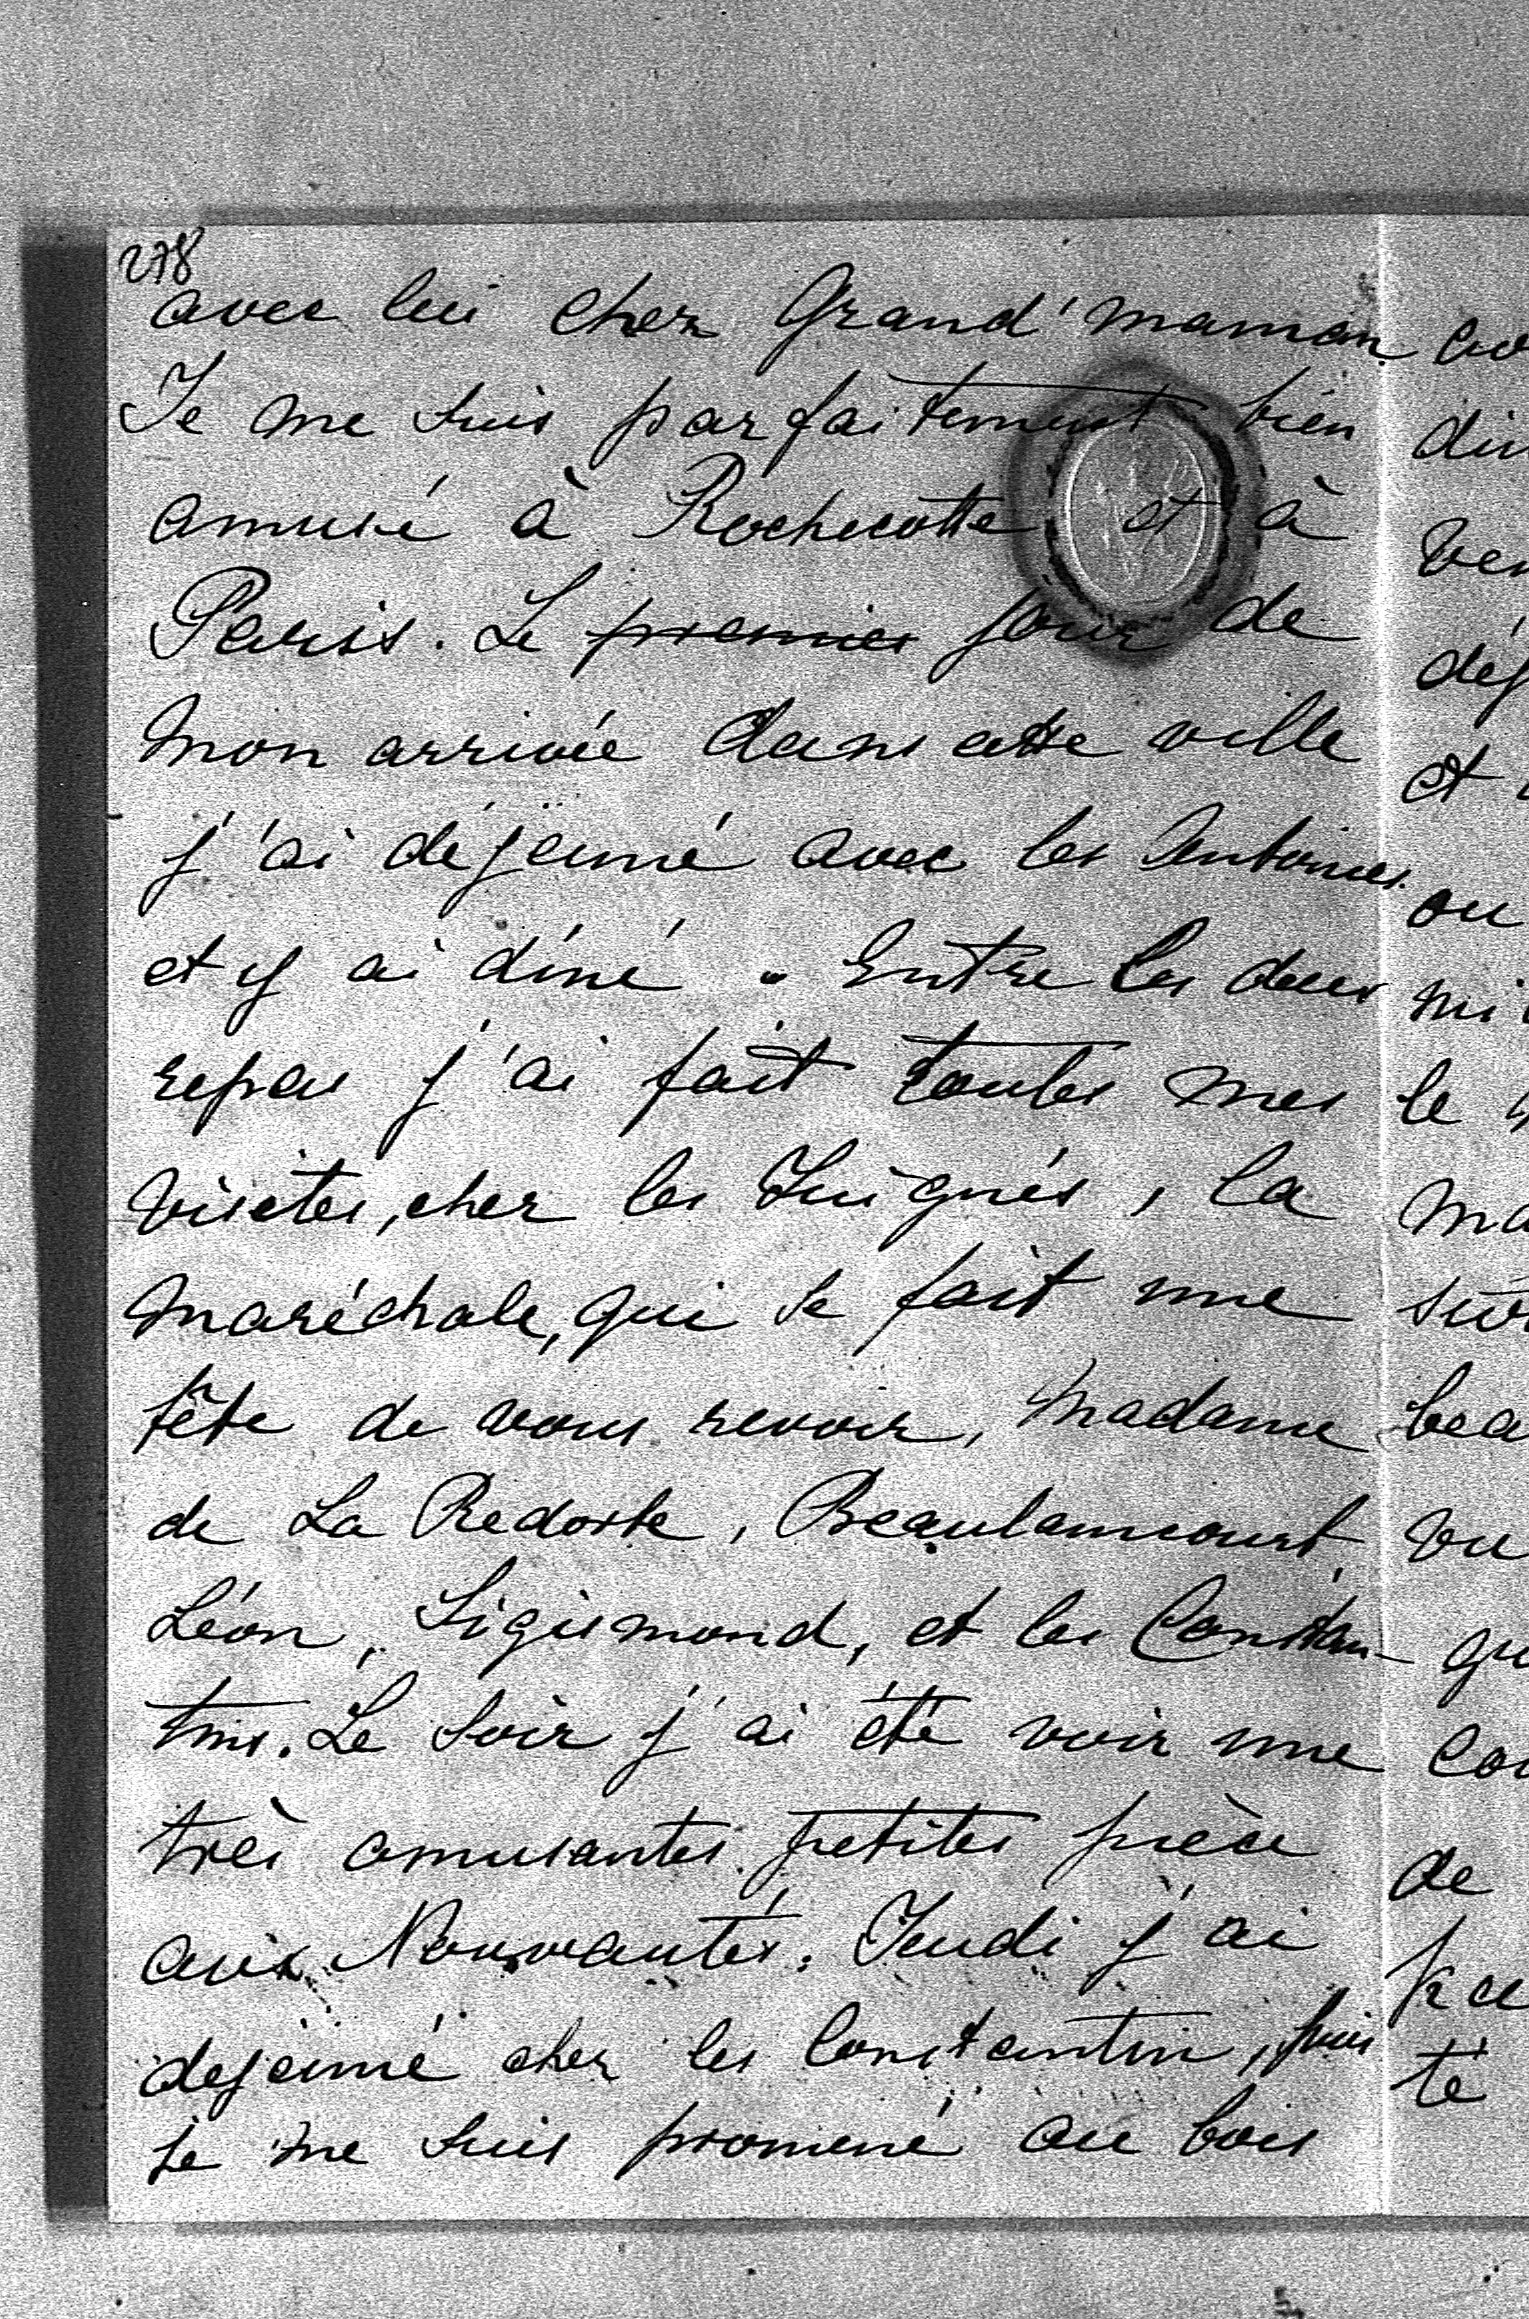 278
avec lui chez Grand'maman.
Je me suis parfaitement bien
amusé à Rochecotte et à
Paris. Le premier jour de
mon arrivée dans cette ville
j'ai déjeuné avec les Antoines
et y ai dîné. Entre les deux
repas j'ai fait toutes mes
visites, chez les Juignés, la
maréchale, qui se fait une
fête de vous revoir, Madame
de La Redorte, Beaulaincourt,
Léon, Sigismond, et les Constan-
tins. Le soir j'ai été voir une
très amusantes petites pièce
aux Nouveautés. Jeudi j'ai
dejeuné chez les Constantin, puis
je me suis promené au bois
ou
le
de
té